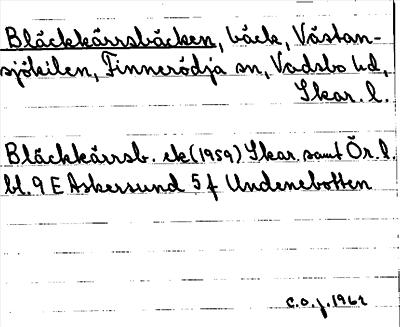 Bläckkärrsbäcken, bäck, Västan-
sjökilen, Finnerödja sn, Vadsbo hd,
Skar. l.
Bläckkärrsb. ek (1959) Skar. samt Ör. l.
bl. 9 E Askersund 5 f Undenebotten
C.O.J. 1962